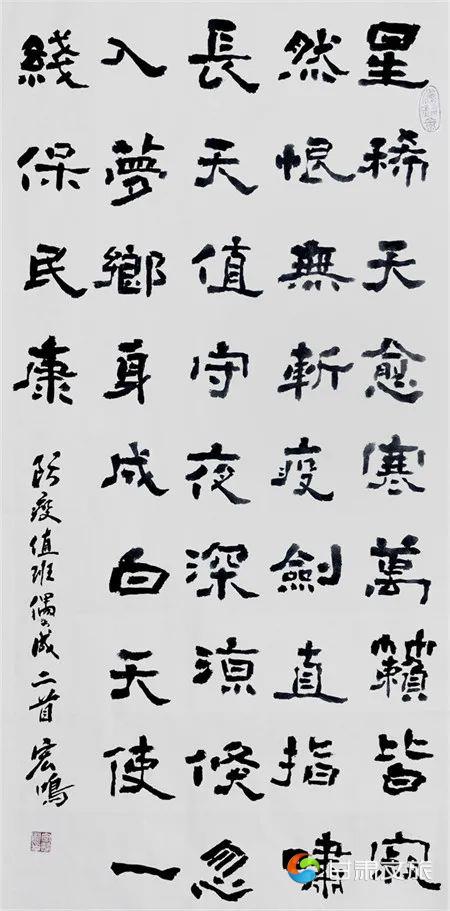 星稀天愈寒萬籟皆寂
然恨無斬疫劍直指嘯
長天值守夜深涼倏忽
入夢鄉身成白天使一
綫保民康
防疫值班偶成二首 宏鳴
甘肃文旅